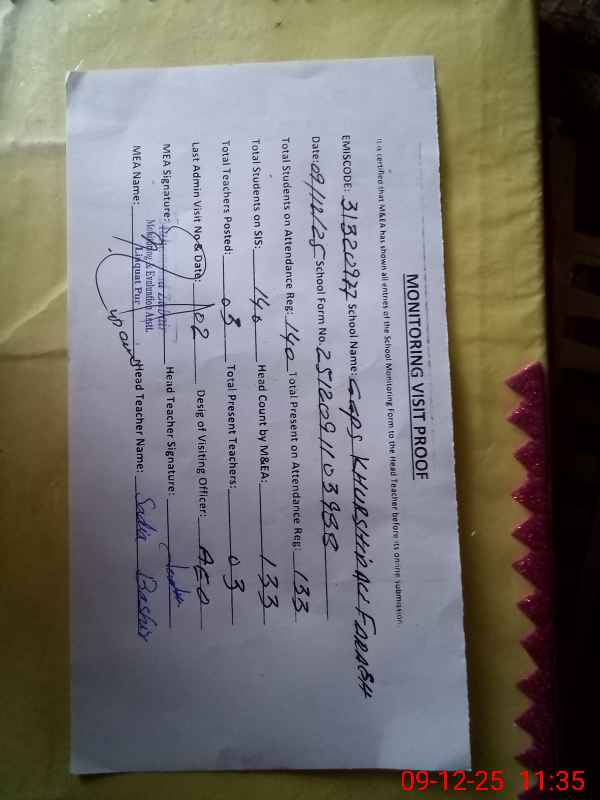 MONITORING VISIT PROOF
It is certified that M&EA has shown all entries of the School Monitoring Form to the Head Teacher before its online submission.
EMISCODE: 31320927 School Name: GGPS KHURSHID ALI FORAGH
Date: 09/12/25 School Form No. 2512091103988
Total Students on Attendance Reg: 140 Total Present on Attendance Reg: 133
Total Students on SIS: 140 Head Count by M&EA: 133
Total Teachers Posted: 03 Total Present Teachers: 03
Last Admin Visit No & Date: 02 Desig of Visiting Officer: AEO
MEA Signature: Head Teacher Signature:
Monitoring & Evaluation Asstt.
Liaquat Pur
MEA Name: Head Teacher Name: Sadia Bashir
09-12-25 11:35